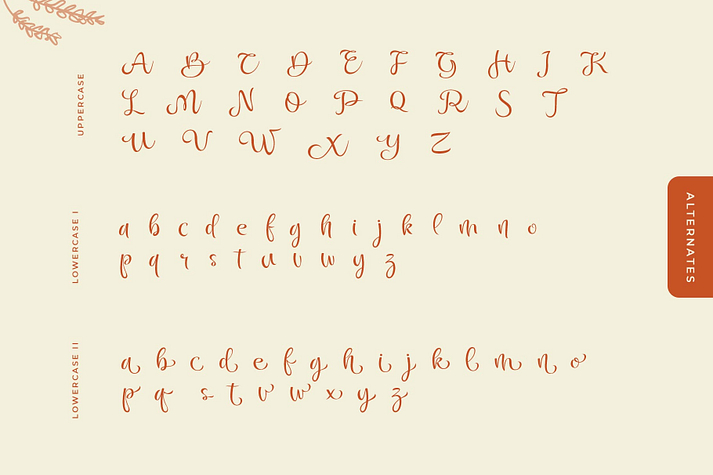 UPPERCASE
A B C D E F G H J K
L M N O P Q R S T
U V W X Y Z
LOWERCASE I
a b c d e f g h i j k l m n o
p q r s t u v w y z
LOWERCASE II
a b c d e f g h i j k l m n o
p q s t v w x y z
ALTERNATES